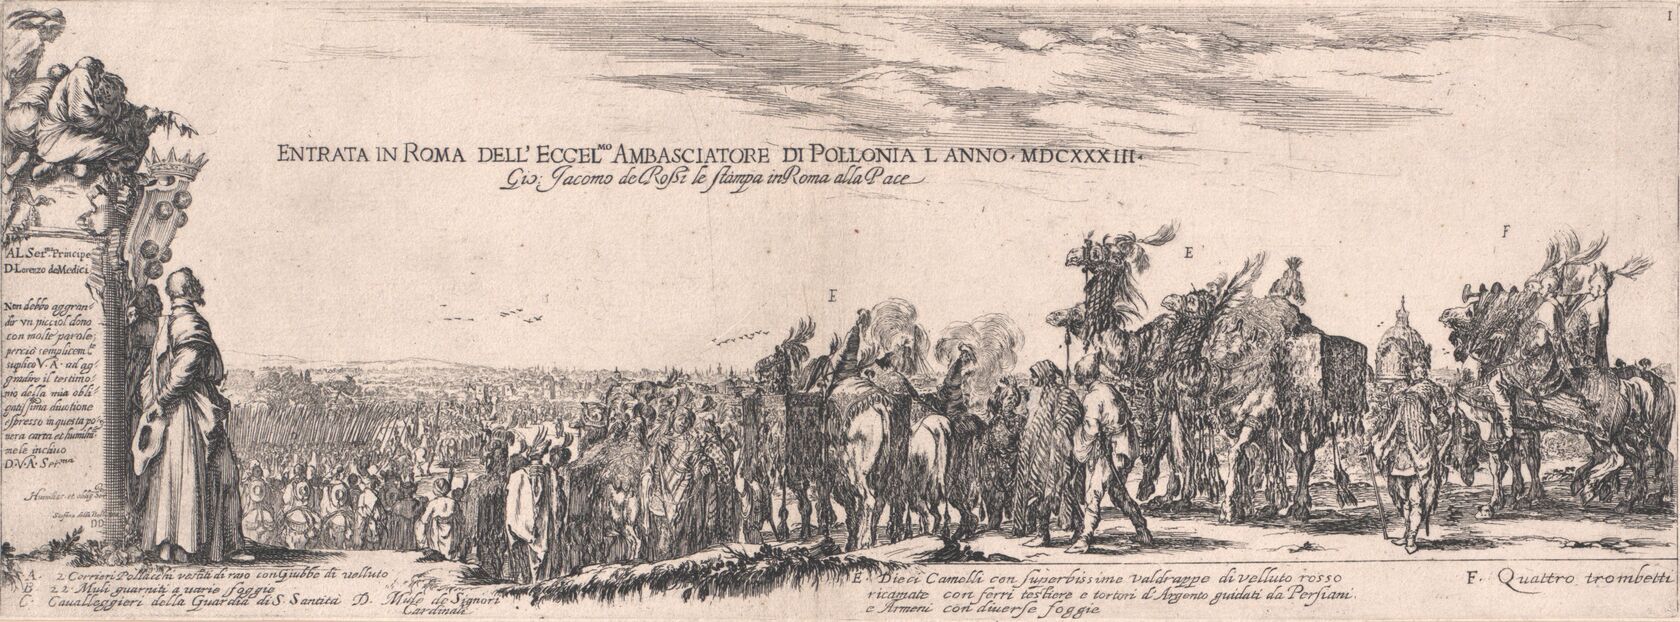 1
ENTRATA IN ROMA DELL' ECCEL.MO AMBASCIATORE DI POLLONIA L ANNO · MDCXXXIII ·
Gio: Jacomo de Rossi le stampa in Roma alla Pace
E
E
F
AL Ser.mo Principe
D. Lorenzo de Medici
Non debbo aggran-
dir vn picciol dono
con molte parole;
perciò semplicem.te
suplico V·A· ad ag-
gradire il testimo-
nio della mia obli-
gatissima diuotione
espresso in questa po-
uera carta et humilm-
nele inchino
D·V·A· Ser.ma
Stefano della Bella
DD
A. 2 Corrieri Pollacchi vestiti di raso con Giubbe di velluto
B 22 Muli guarniti a varie foggie
C. Cavalleggieri della Guardia di S. Santità D. Mule de Signori
Cardinali
E. Dieci Camelli con superbissime valdrappe di velluto rosso
ricamate con ferri testiere e tortori d'Argento guidati da Persiani
e Armeni con diuerse foggie
F. Quattro trombetti